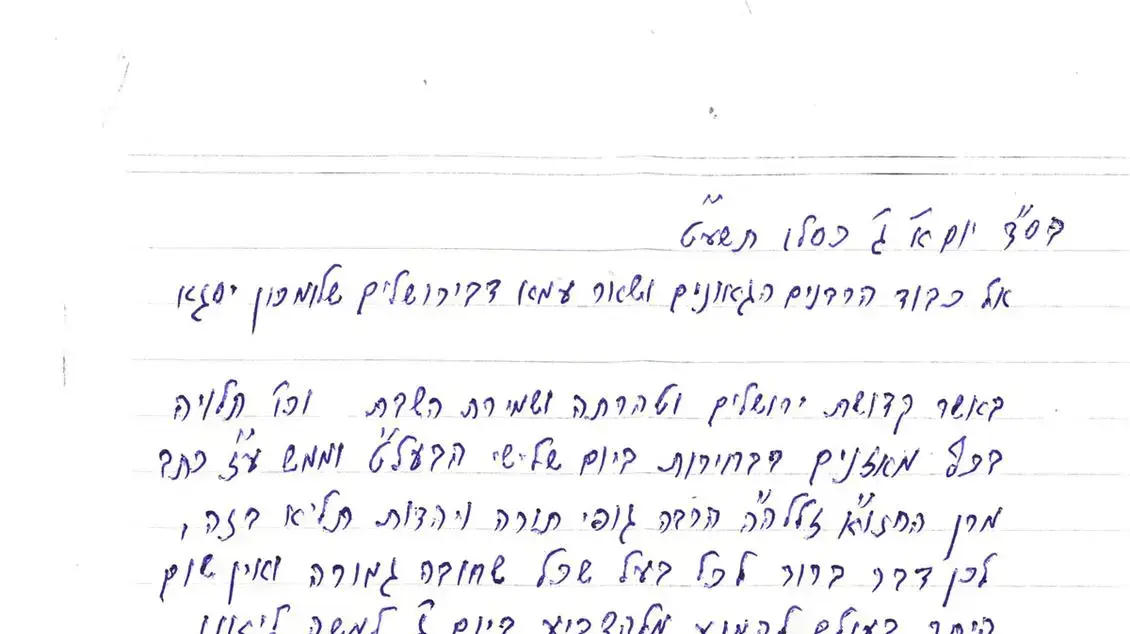 בס"ד יום א' ג' כסלו תשע"ט
אל כבוד הרבנים הגאונים ושאור עמא דבירושלים שלומכון יסגא
באשר קדושת ירושלים וטהרתה ושמירת השבת וכו' תלויה
בכף מאזנים בבחירות ביום שלישי הבעל"ט וממש ע"ז כתב
מרן החזו"א זללה"ה הרבה גופי תורה ויהדות תליא בזה,
לכן דבר ברור לכל בעל שכל שחובה גמורה ואין שום
היתר בעולם להמנע מלהצביע ביום ג' למשה ליאון